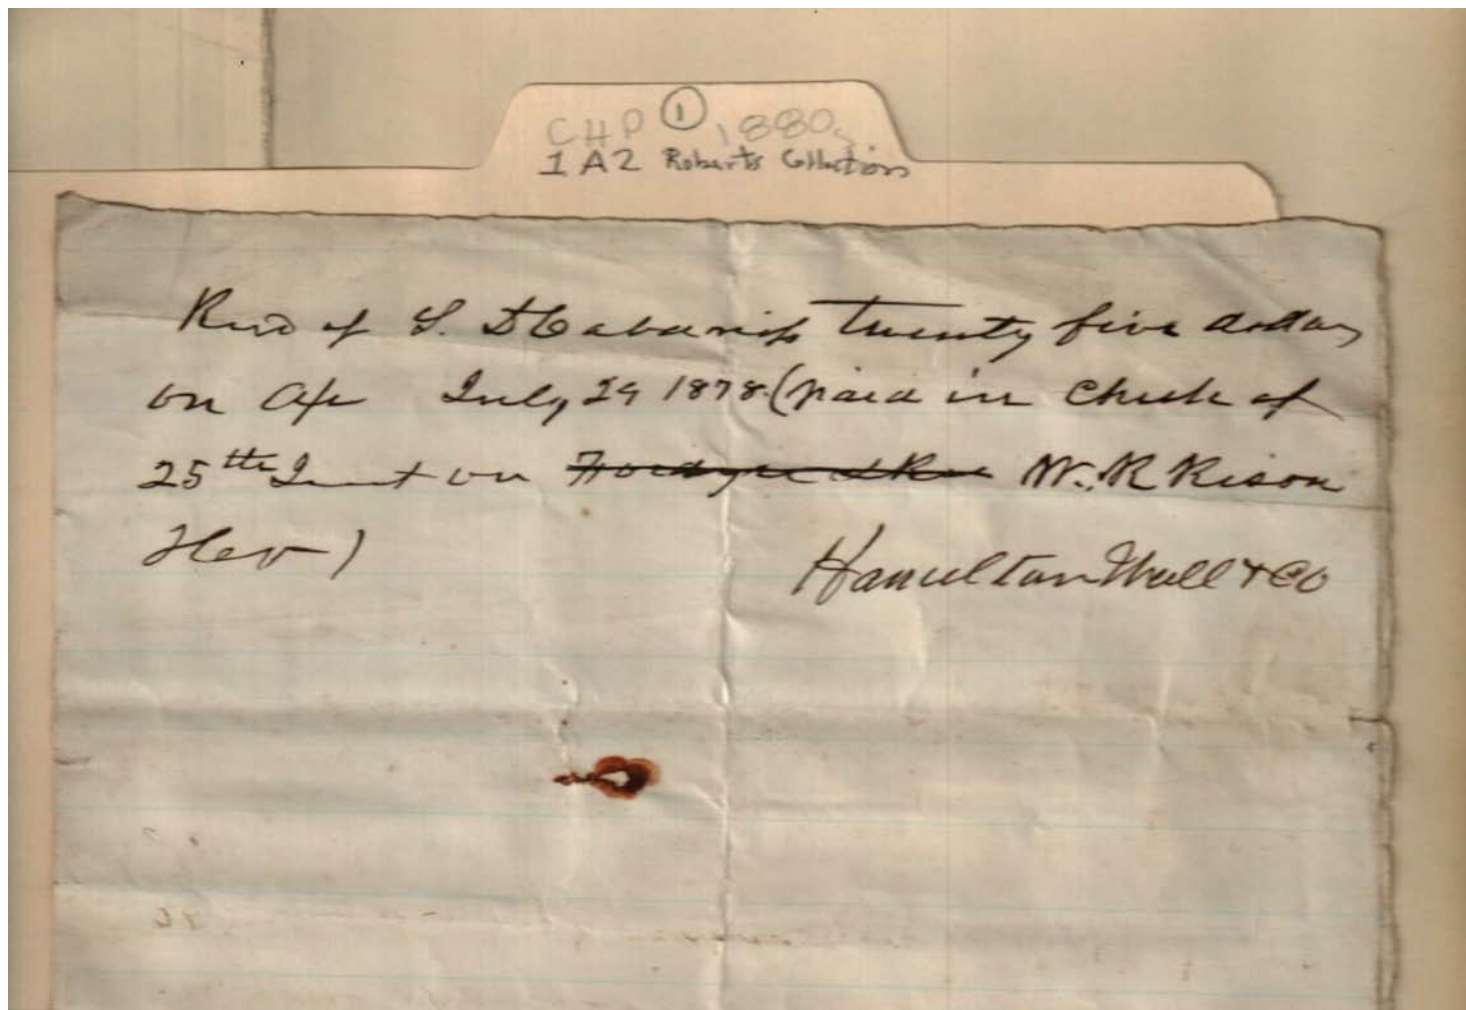 CHP ① 1880s
1A2 Roberts Collection
Recd of S. D Cabaniss twenty five dollars
on a/c July 29 1878 (paid in check of
25th Inst on W. R Rison
Hamilton Wall & Co